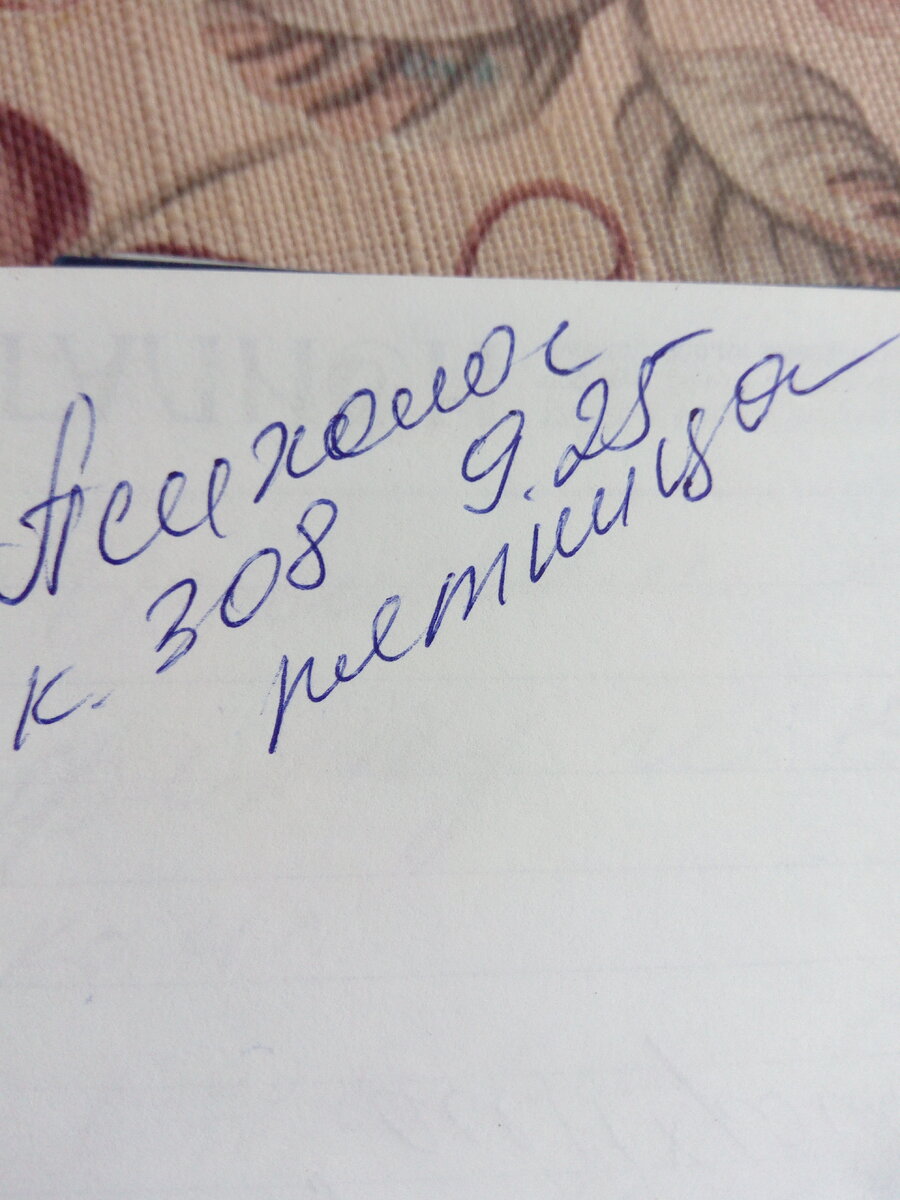 Психолог
к. 308 9.25
пятница